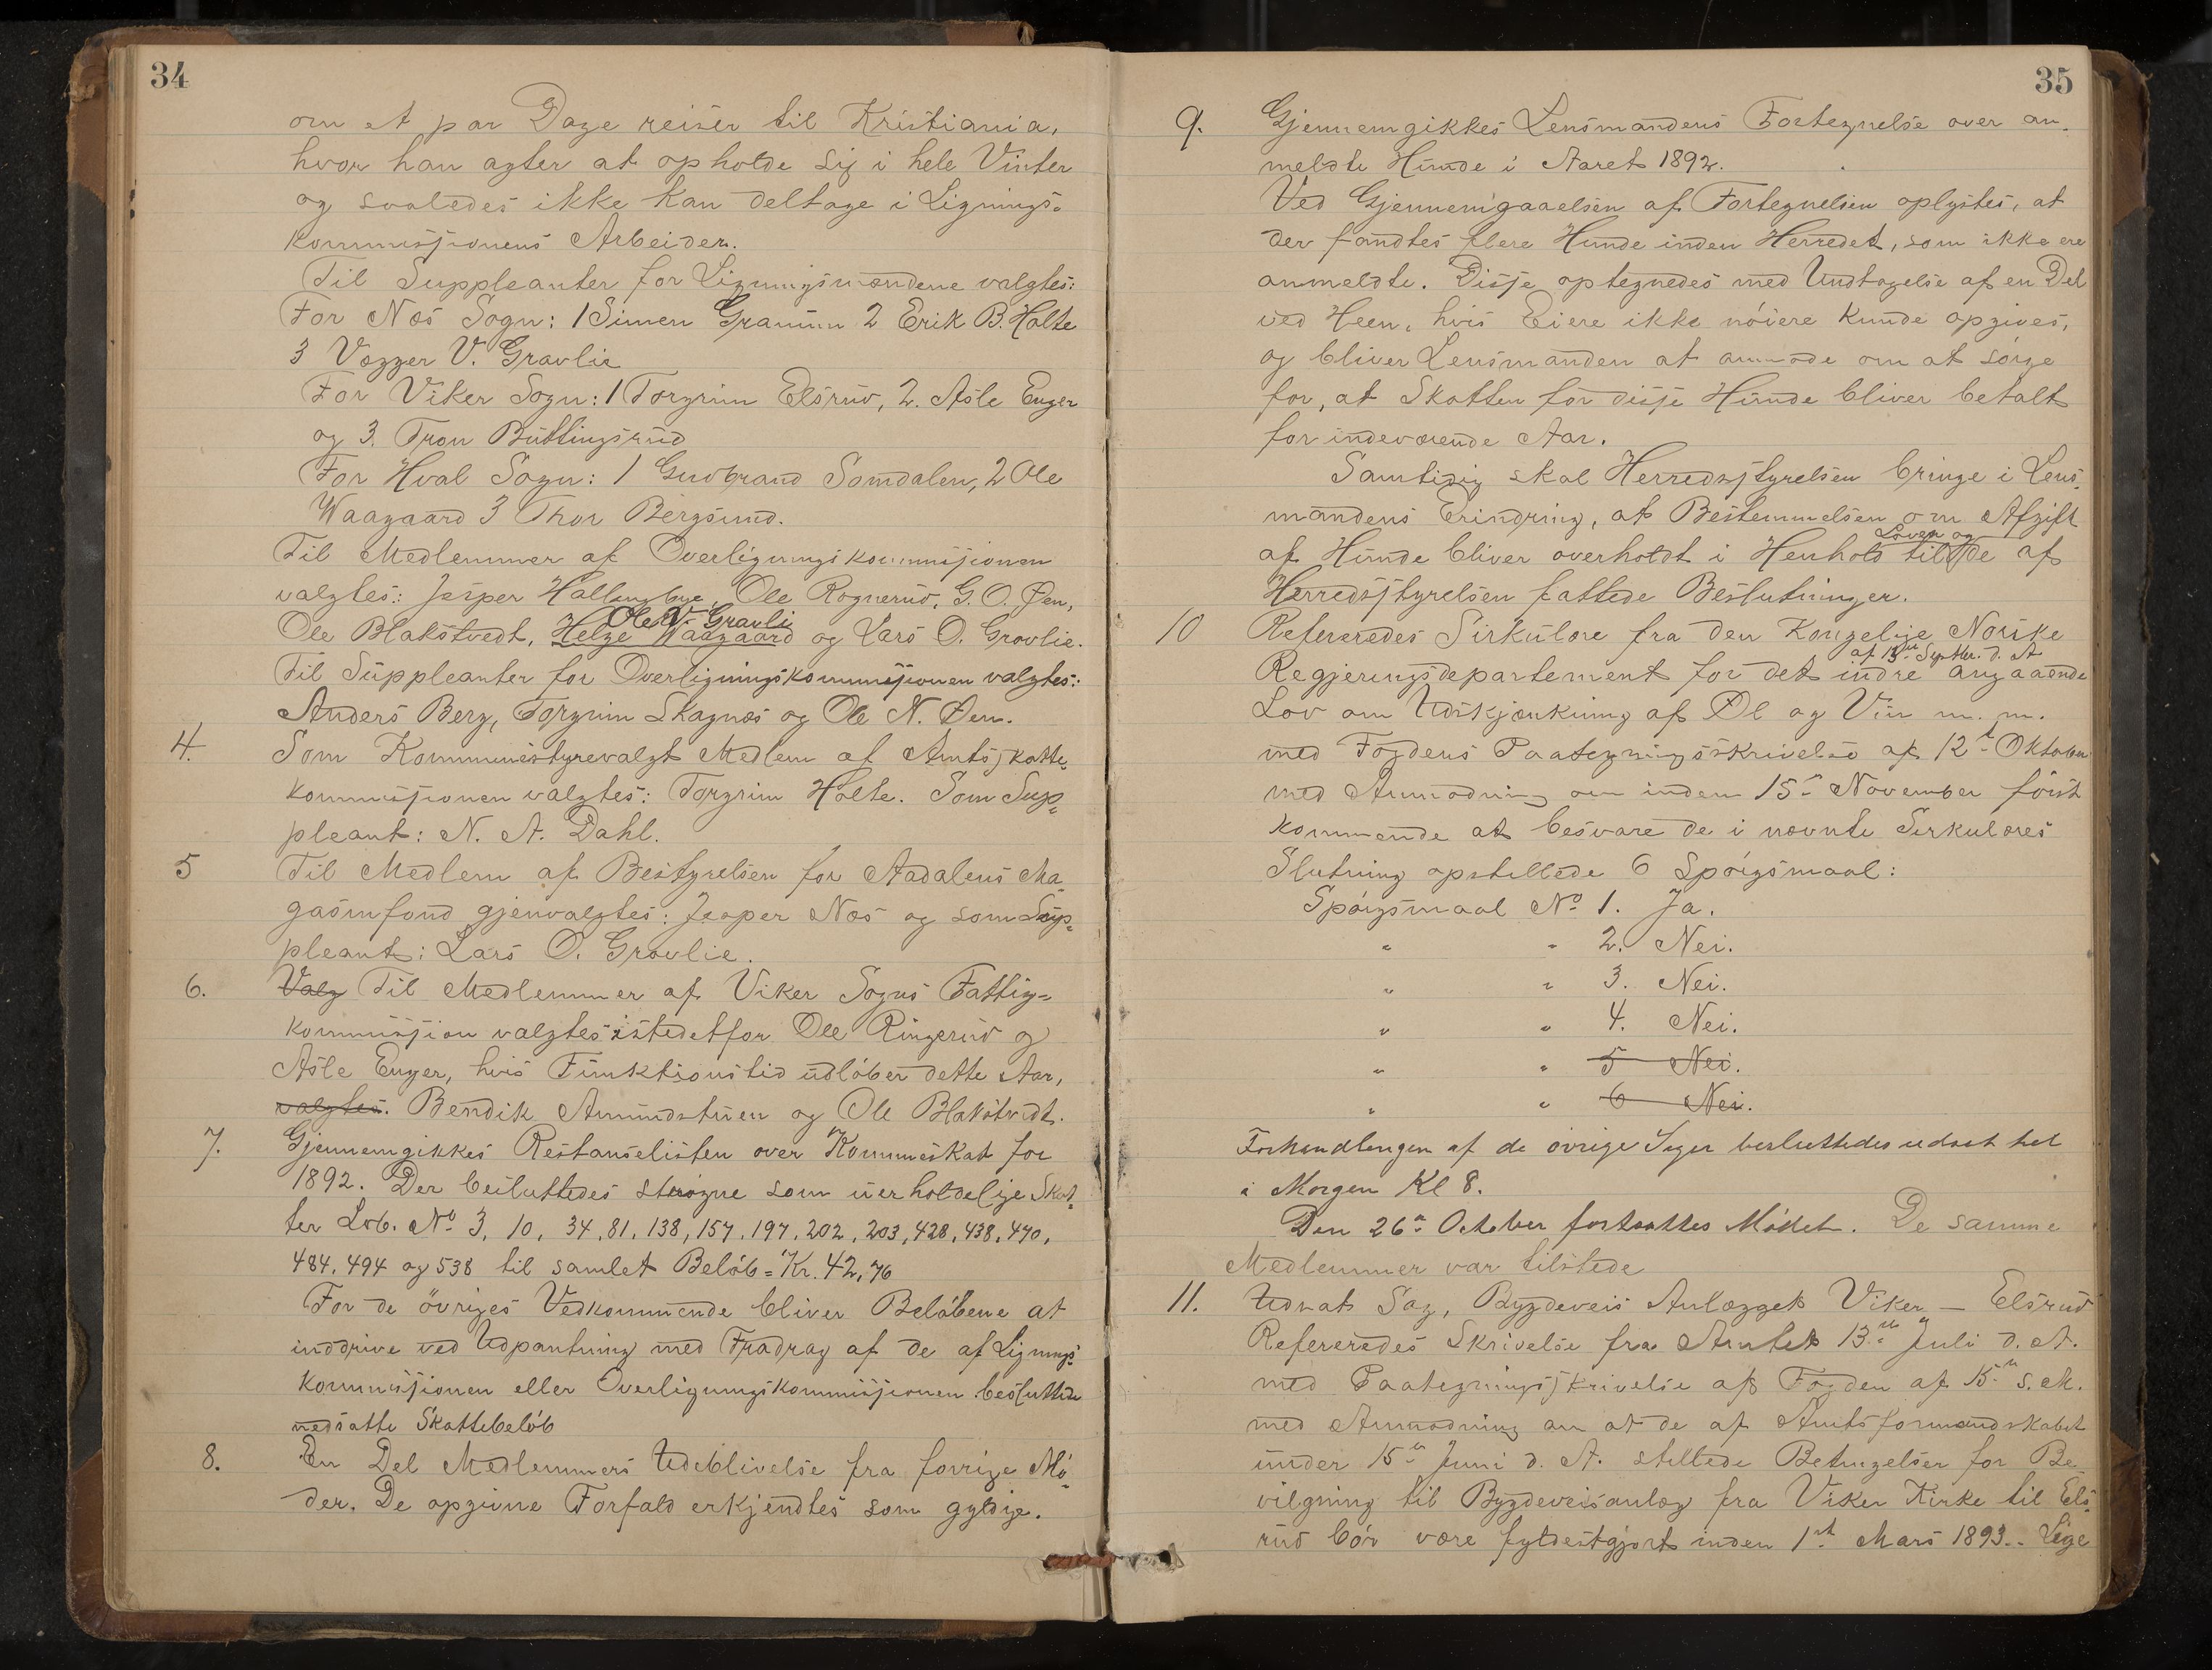 34
om et par Dage reiser til Kristiania,
hvor han agter at opholde sig i hele Vinter
og saaledes ikke kan deltage i Lignings-
kommissionens Arbeider.
Til Suppleanter for Ligningsmændene valgtes:
For Næs Sogn: 1 Simen Gramm 2 Erik B. Holte
3 Vegger V. Gravlie
For Viker Sogn: 1 Torgrim Elsrud, 2. Asle Enger
og 3. Tron Buttingsrud
For Hval Sogn: 1 Gudbrand Somdalen, 2 Ole
Waagaard 3 Thor Bergsund.
Til Medlemmer af Overligningskommissionen
valgtes: Jesper Hallingbye, Ole Rognerud, G. O. Øen,
Ole V. Gravli
Ole Blakstvedt, Helge Waagaard og Lars O. Gravlie.
Til Suppleanter for Overligningskommissionen valgtes:
Anders Berg, Torgrim Skagnæs og Ole N. Øen.
4. Som Kommunestyrevalgt Medlem af Amtsskatte-
kommissionen valgtes: Torgrim Holte. Som Sup-
pleant: N. A. Dahl.
5 Til Medlem af Bestyrelsen for Aadalens Ma-
gasinfond gjenvalgtes: Jesper Næs og som Sup-
pleant: Lars O. Gravlie.
6. Valg Til Medlemmer af Viker Sogns Fattig-
kommission valgtes istedetfor Ole Ringerud og
Asle Enger, hvis Funktionstid udløber dette Aar,
valgtes. Bendik Amundstuen og Ole Blakstvedt.
7. Gjennemgikkes Restanselisten over Kommuneskat for
1892. Der besluttedes strøgne som uerholdelige Skat-
ter Løb. No 3, 10, 34, 81, 138, 157, 197, 202, 203, 428, 438, 470,
484, 494 og 538 til samlet Beløb = Kr. 42,76
For de øvriges Vedkommende bliver Beløbene at
inddrive ved Udpantning med Fradrag af de af Lignings-
kommissionen eller Overligningskommissionen besluttede
nedsatte Skattebeløb
8. En Del Medlemmers Udeblivelse fra forrige Mø-
der. De opgivne Forfald erkjendtes som gyldige.
35
9. Gjennemgikkes Lensmandens Fortegnelse over an-
meldte Hunde i Aaret 1892.
Ved Gjennemgaaelsen af Fortegnelsen oplystes, at
der fandtes flere Hunde inden Herredet, som ikke ere
anmeldte. Disse optegnedes med Undtagelse af en Del
ved Heen, hvis Eiere ikke nøiere kunde opgives,
og bliver Lensmanden at anmode om at sørge
for, at Skatten for disse Hunde bliver betalt
for indeværende Aar.
Samtidig skal Herredsstyrelsen bringe i Lens-
mandens Erindring, at Bestemmelsen om Afgift
Loven og
af Hunde bliver overholdt i Henhold til de af
Herredsstyrelsen fattede Beslutninger.
10 Refereredes Sirkulære fra den Kongelige Norske
af 13de Septbr. d. A.
Regjeringsdepartement for det indre angaaende
Lov om Udskjænkning af Øl og Vin m. m.
med Fogdens Paategningsskrivelse af 12te Oktober
med Anmodning om inden 15de November først
kommende at besvare de i nævnte Serkulæres
Slutning opstillede 6 Spørgsmaal:
Spørgsmaal No 1. Ja.
" " 2. Nei.
" " 3. Nei.
" " 4. Nei.
" " 5 Nei.
" " 6 Nei.
Forhandlingen af de øvrige Sager besluttedes udsat til
i Morgen Kl 8.
Den 26de October fortsattes Mødet. De samme
Medlemmer var tilstede
11. Udsat Sag, Bygdeveis Anlægget Viker – Elsrud
Refereredes Skrivelse fra Amtet 13de Juli d. A.
med Paategningsskrivelse af Fogden af 15de s. M.
med Anmodning om at de af Amtsformandskabet
under 15de Juni d. A. stillede Betingelser for Be-
vilgning til Bygdeveisanlæg fra Viker Kirke til Els-
rud bør være fyldestgjort inden 1st Mars 1893.. Lige